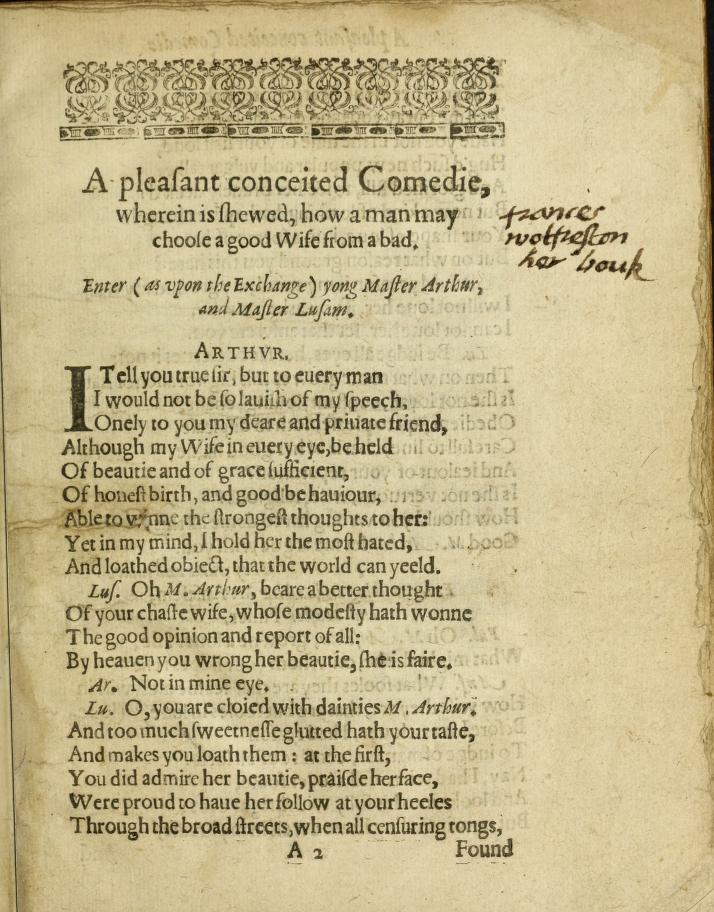 A pleaſant conceited Comedie,
wherein is ſhewed, how a man may
chooſe a good Wife from a bad.
frances
wolfreston
her bouk
Enter ( as vpon the Exchange) yong Maſter Arthur,
and Maſter Luſam.
ARTHVR.
I Tell you true ſir, but to euery man
I would not be ſo lauiſh of my ſpeech,
Onely to you my deare and priuate friend,
Although my Wife in euery eye, be held
Of beautie and of grace ſufficient,
Of honeſt birth, and good behauiour,
Able to wynne the ſtrongeſt thoughts to her:
Yet in my mind, I hold her the moſt hated,
And loathed obiect, that the world can yeeld.
Luſ. Oh M. Arthur, beare a better thought
Of your chaſte wife, whoſe modeſty hath wonne
The good opinion and report of all:
By heauen you wrong her beautie, ſhe is faire.
Ar. Not in mine eye.
Lu. O, you are cloied with dainties M. Arthur,
And too much ſweetneſſe glutted hath your taſte,
And makes you loath them : at the firſt,
You did admire her beautie, praiſde her face,
Were proud to haue her follow at your heeles
Through the broad ſtreets, when all cenſuring tongs,
A 2 Found